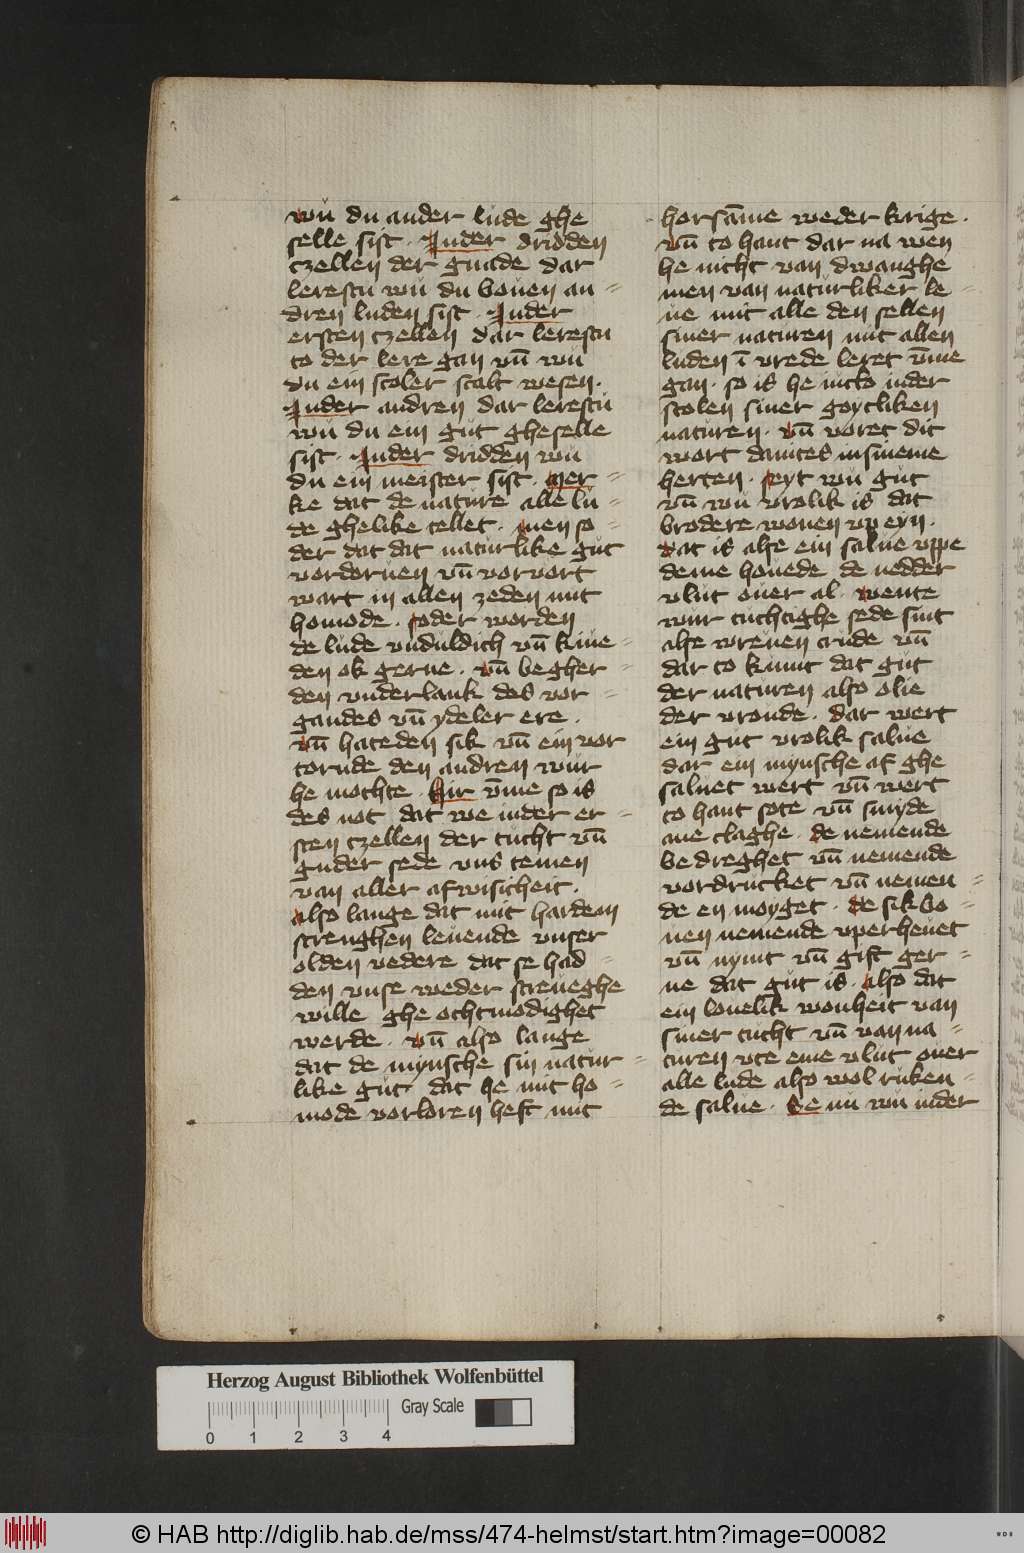 wu du ander lude ghe
selle sist · Inder dridden
czellen der gnade dar
lerestu wu du bouen an=
dren luden sist · Inder
ersten czellen dar lerestu
to der lere gan vn̄ wu
du ein scoler scalt wesen ·
Inder andren dar lerestu
wu du ein gut gheselle
sist · Inder dridden wu
du ein meister sist · Mer=
ke dat de nature alle lu=
de ghelike tellet · men so=
der dat dat naturlike gut
vordoruen vn̄ vorvort
wart in allen zeden mit
homode · soder worden
de lude vnduldich vn̄ kiue=
den ok gerne · vn̄ begher=
den vnderlank des vor=
gandes vn̄ ydeler ere ·
vn̄ hateden sik vn̄ ein vor
tornde den andren wur
he mochte · Hir v̄me so is
des not dat we inder er=
sten czellen der tucht vn̄
guder sede vns temen
van aller afwisicheit ·
also lange dat mit hardem
strenghen leuende vnser
olden vedere dat se had=
den vnse weder streueghe
wille ghe ochtmodighet
werde · vn̄ also lange
dat de mynsche sin natur=
like gut dat he mit ho=
mode vorloren heft mit
horsāme weder krige ·
vn̄ to hant dar na wen
he nicht van dwanghe
men van naturliker le=
ue mit alle den sellen
siner naturen mit allen
luden ī vrede leret v̄me
gan · so is he inder
scolen siner goytliken
naturen · vn̄ voret dit
wort dauites in sineme
herten · seyt wu gut
vn̄ wu vrolik is dat
brodere wonen vp eyn ·
dat is alse ein salue vppe
deme houede de nedder
vlut ouer al · wente
wur tuchtighe sede sint
alse wreuen crude vn̄
dar to kumt dat gut
der naturen also olie
der vroude · dar wert
ein gut vrolik salue
dar ein mynsche af ghe
saluet wert vn̄ wert
to hant sote vn̄ smyde
ane claghe · de nemende
bedreghet vn̄ nemende
vordrucket vn̄ nemen=
de en moyget · de sik bo=
uen nemende vperheuet
vn̄ nymt vn̄ gift ger=
ne dat gut is · also dat
ein louelik wonheit van
siner tucht vn̄ van na=
turen vte eme vlut ouer
alle lude also wol ruken=
de salue · Se nu wu inder
Herzog August Bibliothek Wolfenbüttel
Gray Scale
0 1 2 3 4
© HAB http://diglib.hab.de/mss/474-helmst/start.htm?image=00082